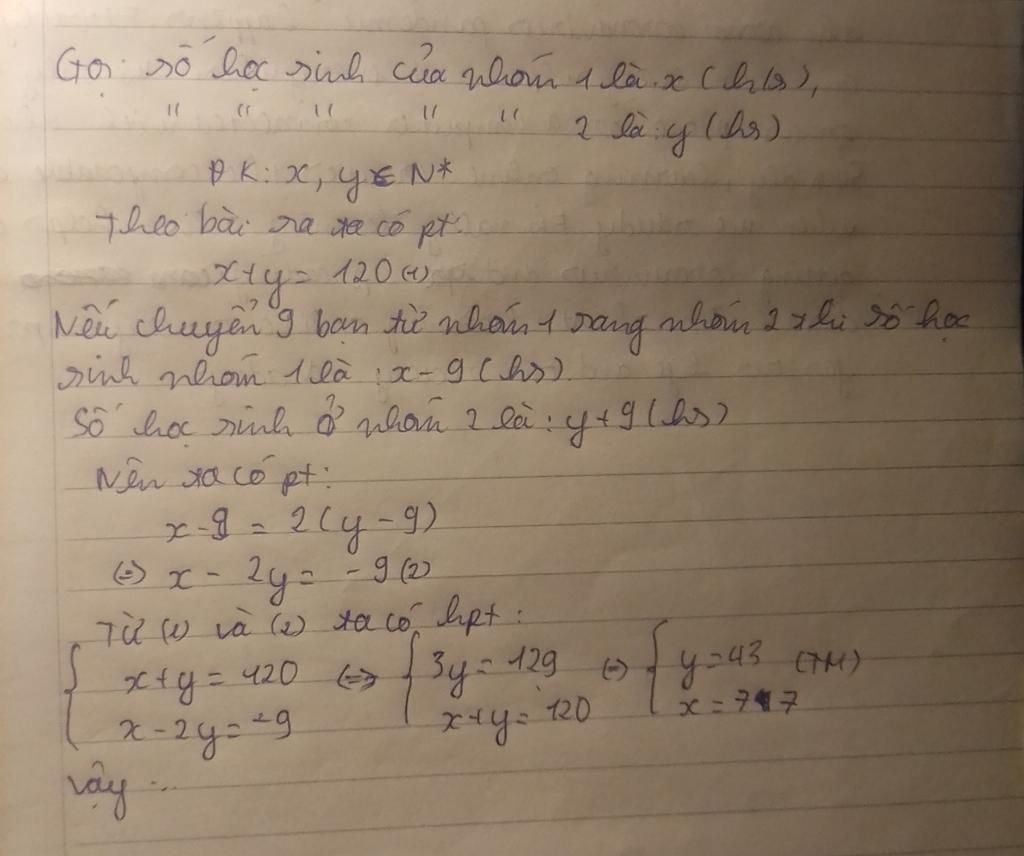 Gọi số học sinh của nhóm 1 là x (hs),
" " " " " 2 là: y (hs)
ĐK: x, y ∈ N*
Theo bài ra ta có pt:
x+y = 120 (1)
Nếu chuyển 9 bạn từ nhóm 1 sang nhóm 2 thì số học
sinh nhóm 1 là: x-9 (hs)
Số học sinh ở nhóm 2 là: y+9 (hs)
Nên ta có pt:
x-9 = 2(y-9)
(=) x - 2y = -9 (2)
Từ (1) và (2) ta có hpt:
{ x+y = 120 (=) { 3y = 129 (=) { y = 43 (TM)
x-2y = -9 x+y = 120 x = 77
Vậy ...